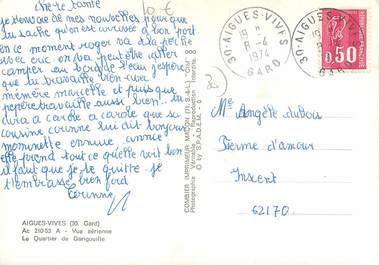 chère tante
je donne de mes nouvelles pour que
tu sache qu'on est arrivée à bon port
en ce moment roger va à la pêche
avec eric. on va peut être aller
camper au bord de l'eau j'espère
que tu travaille bien
mémère marcelle et puis que
pépère travaille aussi bien.. tu
dira a carole a carole que sa
cousine corinne lui dit bonjour
minouette ennuie, annie
elle prend tout ce qu'elle voit bon
il faut que je te quitte je
t'embrasse bien ford
Corinne
10 €
AIGUES-VIVES (30. Gard)
Ac 210-53 A - Vue aérienne
Le Quartier de Garigouille
COMBIER IMPRIMEUR MACON (71. S.-&-L.) "CIM"
Photographie Véritable - Reproduction interdite
© by S.P.A.D.E.M. - 0
30-AIGUES-VIVES
19 H
8-4
1974
GARD
30-AIGUES-VIVES
19 H
8-4
GARD
0,50
Me Angèle dubois
Ferme d'amour
Inscent
62170